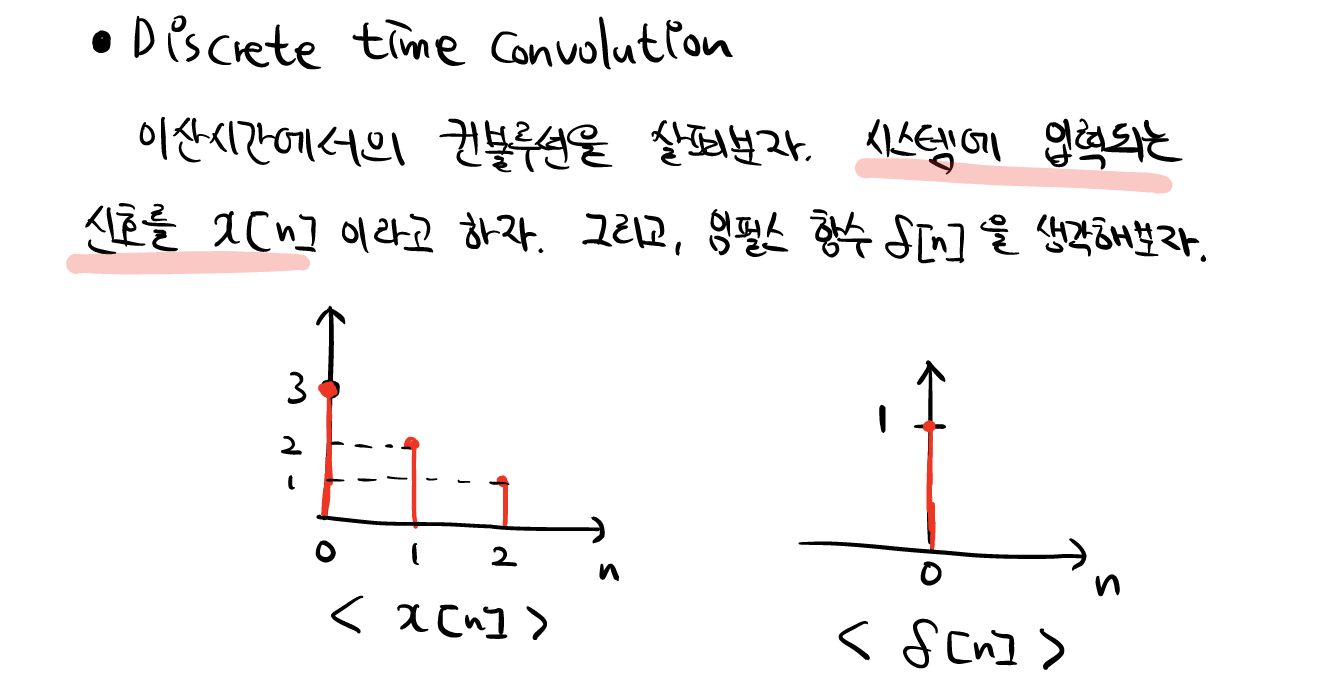 • Discrete time Convolution
이산시간에서의 컨볼루션을 살펴보자. 시스템에 입력되는
신호를 x[n] 이라고 하자. 그리고, 임펄스 함수 δ[n] 을 생각해보자.
3
2
1
0 1 2 n
< x[n] >
1
0 n
< δ[n] >